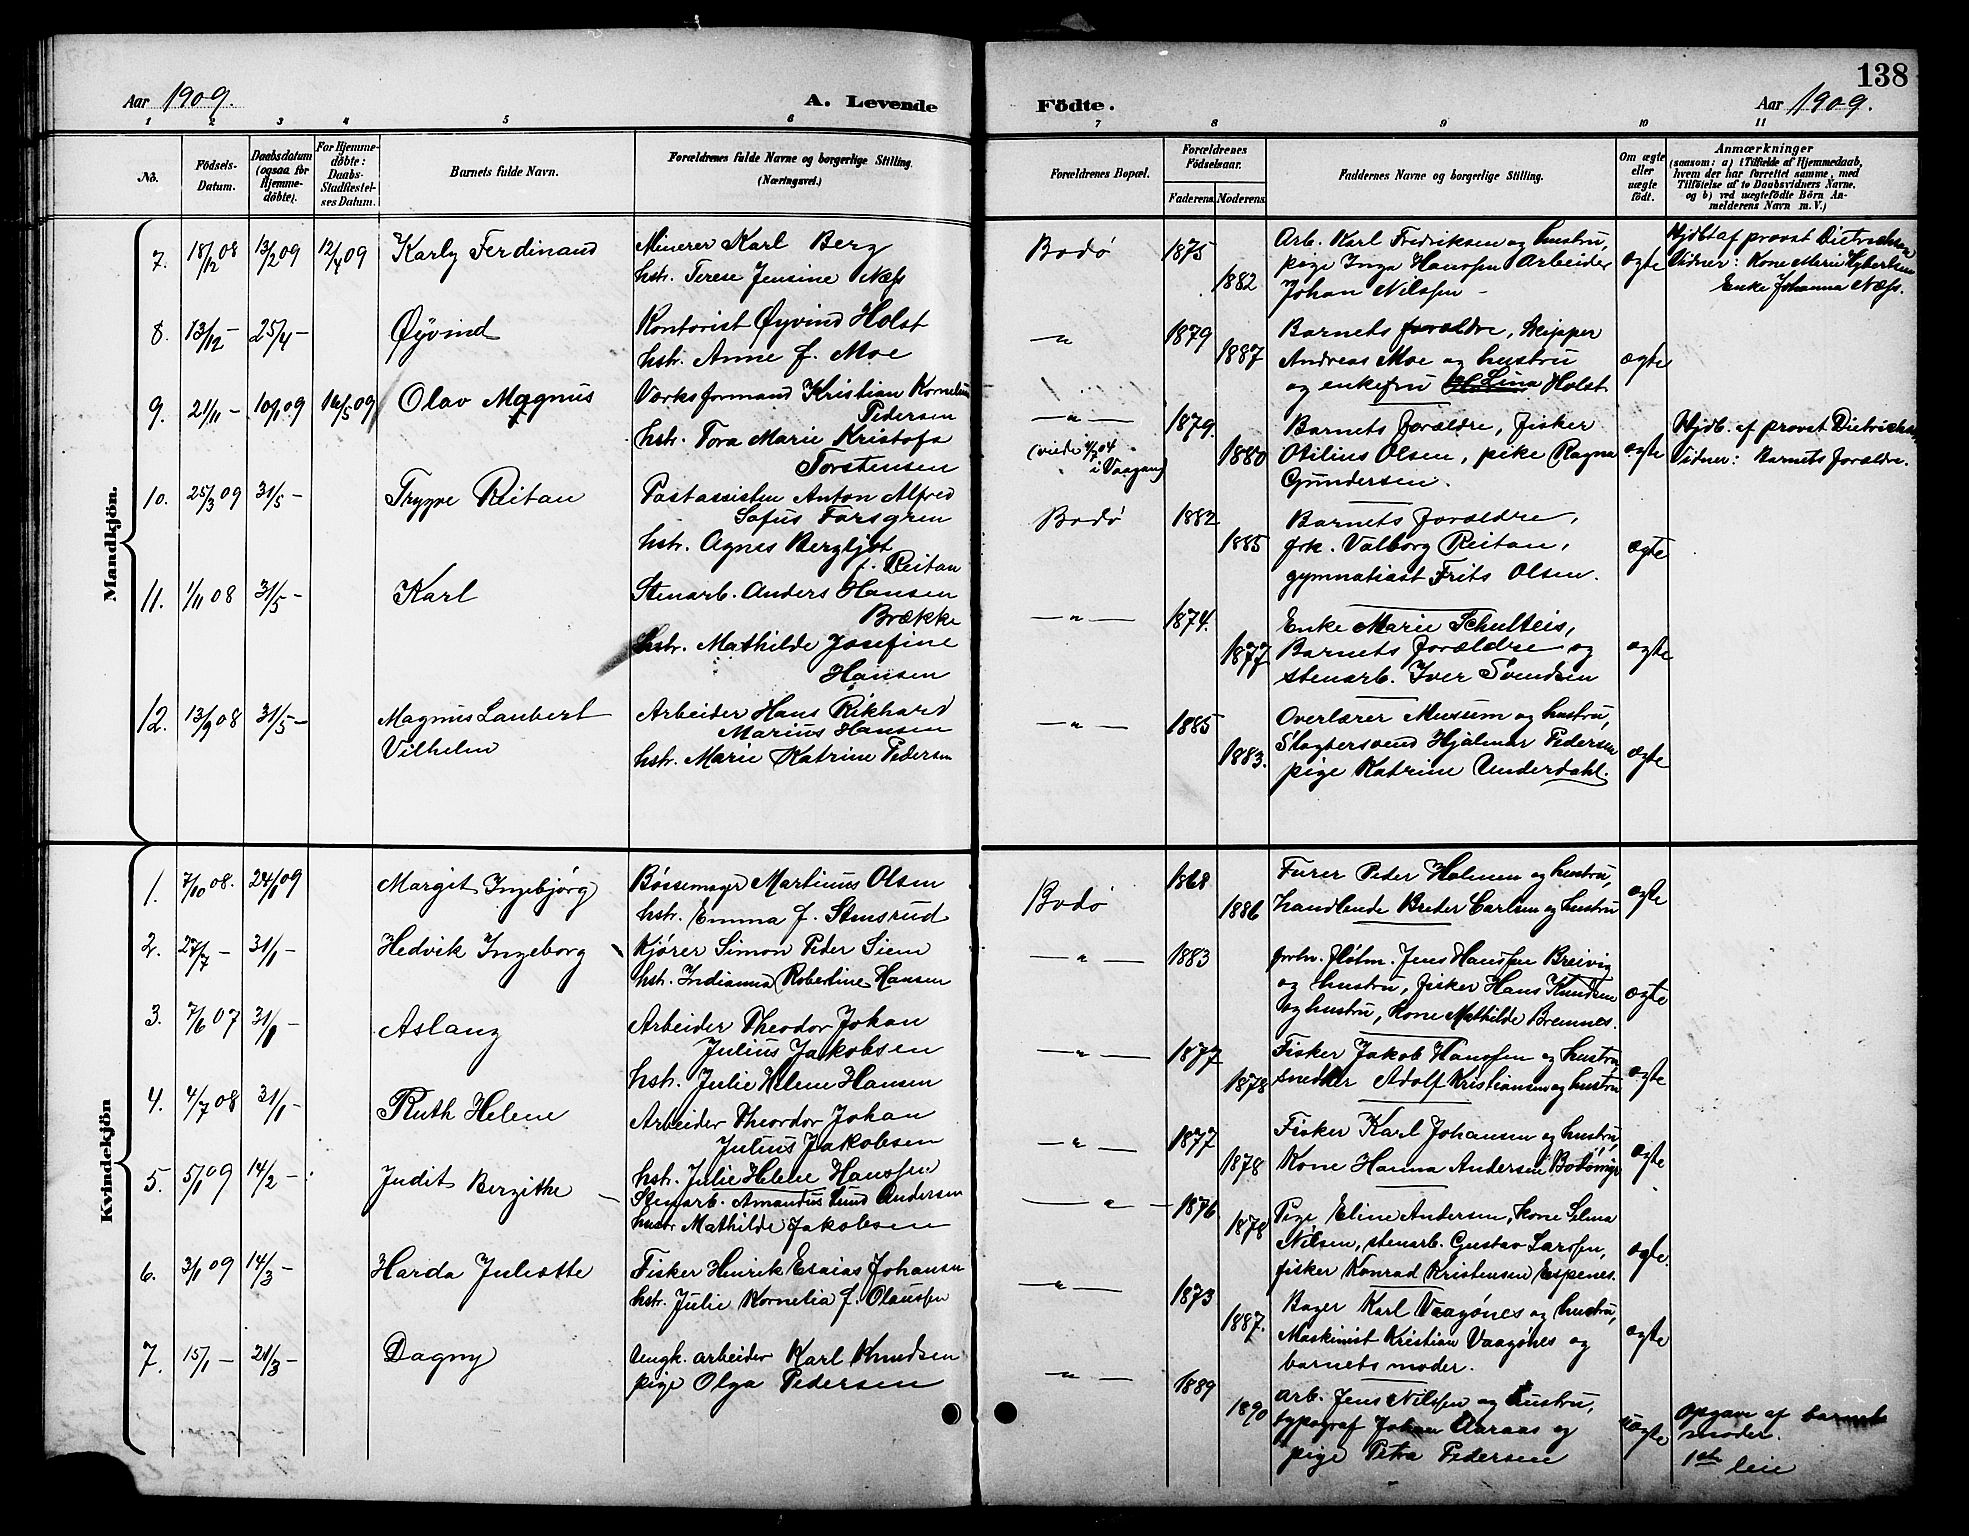 138
Aar 1909.
A. Levende Födte.
Aar 1909.
1 2 3 4 5 6 7 8 9 10 11
No.
Födsels-Datum.
Daabsdatum (ogsaa for Hjemmedöbte).
For Hjemmedöbte: Daabs-Stadfæstelses Datum.
Barnets fulde Navn.
Forældrenes fulde Navne og borgerlige Stilling.
(Næringsvei.)
Forældrenes Bopæl.
Forældrenes Födselsaar.
Faderens. Moderens.
Faddernes Navne og borgerlige Stilling.
Om ægte eller uægte födt.
Anmærkninger
(saasom: a) i Tilfælde af Hjemmedaab, hvem der har forrettet samme, med Tilföielse af to Daabsvidners Navne, og b) ved uægtefödte Börn Anmelderens Navn m. V.)
Mandkjön.
7. 18/12 08 13/2 09 12/4 09 Karly Ferdinand
Minerer Karl Berg
hstr. Terese Jensine Næss
Bodø 1875 1882
Arb. Karl Fredriksen og hustru,
pige Inga Hanssen Arbeider
Johan Nilssen -
ægte
Hjdbt af provst Dietrichson
Vidner: Kone Merie
Enke Johanna Næss.
8. 13/12 - 25/4 - Øyvind
Kontorist Øyvind Holst
hstr. Anne f. Moe
- " - 1879 1887
Barnets forældre, Skipper
Andreas Moe og hustru
og enkefru Lina Holst
ægte
9. 21/11 - 10/1 09 16/5 09 Olav Magnus
Værksformand Kristian Kornelius
Pedersen
hstr. Tora Marie Kristofa
Torstensen
- " -
(viede 4/7 04
i Vaagan)
1879. 1880
Barnets forældre, fisker
Otilius Olsen, pike Ragna
Gundersen.
ægte
Hjdb. af provst Dietrichson
Vidner: Barnets forældre.
10. 25/3 09 31/5 - Tryggve Reitan
Postassisten Anton Alfred
Sofus Forsgren
hstr. Agnes Bergljot
f. Reitan
Bodø 1882 1885
Barnets forældre,
frk. Valborg Reitan,
gymnasiast Frits Olsen.
ægte
11. 1/11 08 31/5 - Karl
Stenarb. Anders Hansen
Brække
hstr. Mathilde Josefine
Hansen
- " - 1874. 1877
Enke Marie Schulteis,
Barnets forældre og
stenarb. Iver Svendsen
ægte
12. 13/9 08 31/5 - Magnus Laubert
Vilhelm
Arbeider Hans Rikhard
Marius Hansen
hstr. Marie Katrine Pedersen
- " - 1885 1883.
Overlærer Mursum og hustru,
Slagtersvend Hjalmar Pedersen
pige Katrine Underdahl.
ægte
Kvindekjön
1. 7/10 08. 24/1 09 Margit Ingebjørg
Bøssemager Martinus Olsen
hstr. Emma f. Stensrud
Bodø 1868 1886
Furer Peder Holmen og hustru,
handlende Breder Carlsen og hustru
ægte
2. 27/7 - 31/1 - Hedvik Ingeborg
Kjører Simon Peder Siem
hstr. Indianna Robertine Hansen
- " - 1883
forhv. fløtm. Jens Hanssen Breivig
og hustru, fisker Hans Knudsen
og hustru, Kone Mathilde Bremnes.
ægte
3. 7/6 07 31/1 - Aslaug
Arbeider Theodor Johan
Julius Jakobsen
hstr. Julie Helene Hansen
- " - 1877 1878
Fisker Jakob Hanssen og hustru,
snedker Adolf Kristiansen og hustru
ægte
4. 4/7 08 31/1 - Ruth Helene
Arbeider Theordor Johan
Julius Jakobsen
hstr. Julie Helene Hanssen
- " - 1877 1878
Fisker Karl Johansen og hustru,
Kone Hanna Andersen
ægte
5. 5/1 09 14/2 - Judit Bergithe
Stenarb. Amandus Lund Andersen
hustr Mathilde Jakobsen
- " - 1876 1878
Pige Eline Andersen, kone Selma
Nilsen, stenarb. Gustav Larssen,
fisker Konrad Kristensen Espenes.
ægte.
6. 3/1 09 14/3 - Harda Juliette
Fisker Henrik Esaias Johansen
hstr. Julie Kornelia f. Olaussen
- " - 1873 1887.
Bager Karl Vaagønes og hustru,
Maskinist Kristian Vaagønes og
barnets moder.
ægte
7. 15/1 - 21/3 - Dagny
Ungk. arbeider Karl Knudsen
pige Olga Pedersen
- " - 1889 1890
Arb. Jens Nilssen og hustru,
typograf Johan Aaraas og
pige Petra Pedersen
uægte
Opgav af barnets
moder.
1ste leie